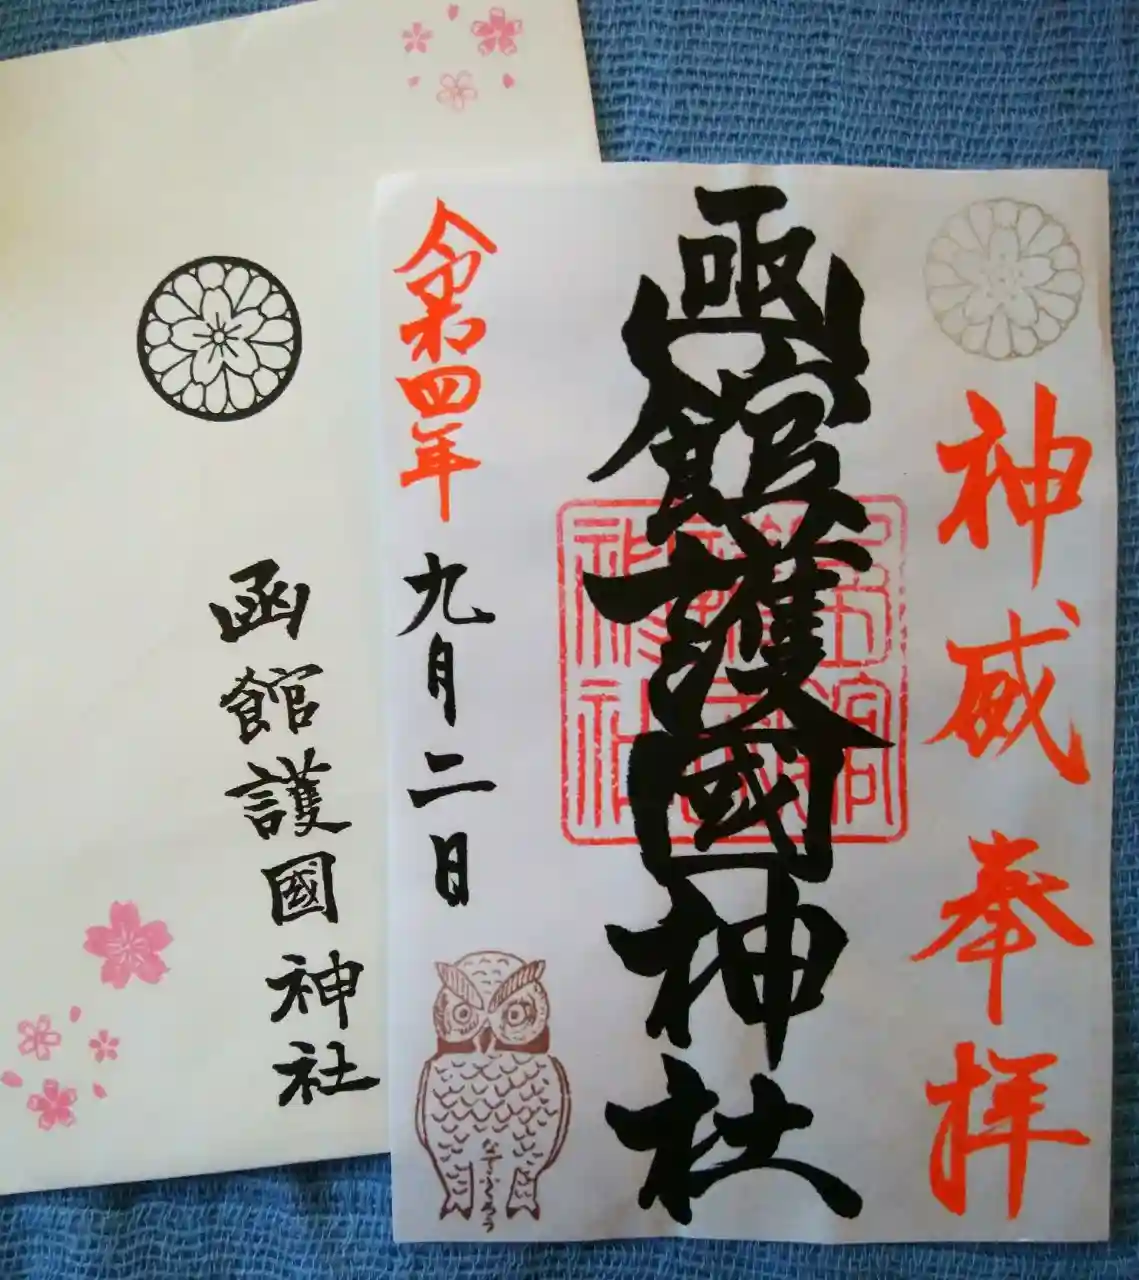 神威奉拝
函館護國神社
令和四年九月二日
なでふくろう
函館護國神社